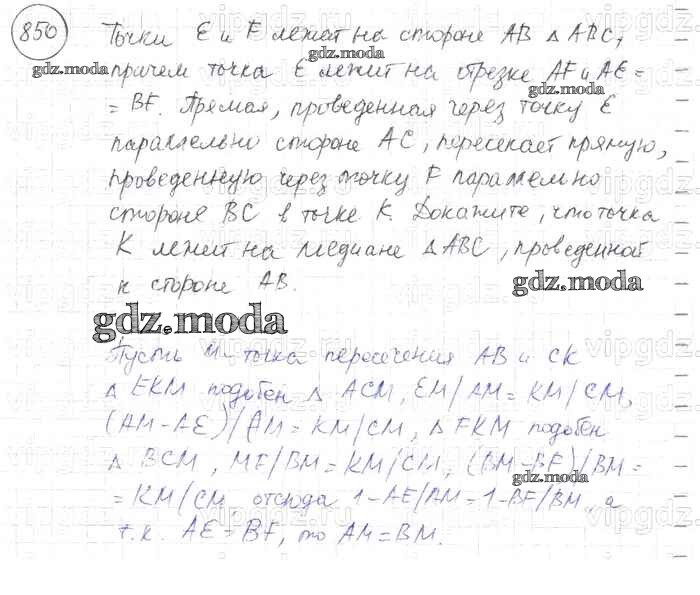 850 Точки E и F лежат на стороне AB △ ABC,
gdz.moda
gdz.moda
причем точка E лежит на отрезке AF и AE =
= BF. Прямая, проведенная через точку E
gdz.moda
параллельно стороне AC, пересекает прямую,
проведенную через точку F параллельно
стороне BC в точке K. Докажите, что точка
gdz.moda
K лежит на медиане △ABC, проведенной
к стороне AB.
gdz.moda
gdz.moda
Пусть M - точка пересечения AB и CK
△ EKM подобен △ ACM, EM/AM = KM/CM,
(AM-AE)/AM = KM/CM, △ FKM подобен
△ BCM, MF/BM = KM/CM, (BM-BF)/BM =
gdz.moda
= KM/CM, отсюда 1-AE/AM = 1-BF/BM, а
т.к. AE = BF, то AM = BM.